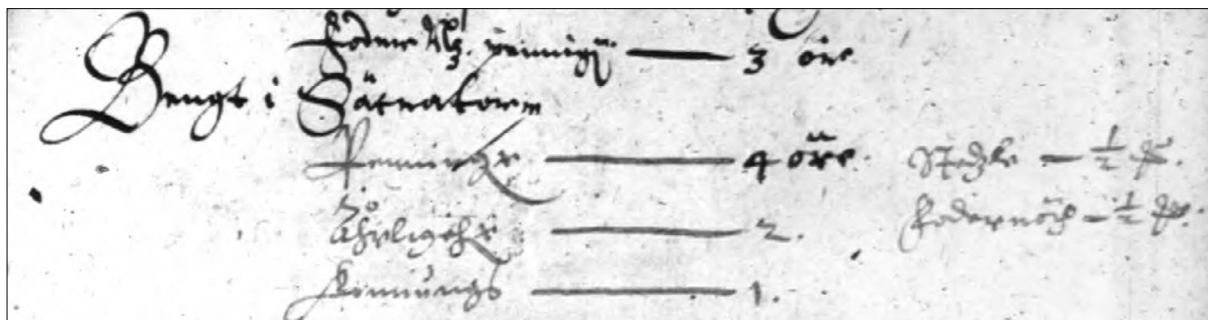 Foder Nötz penning — 3 öre
Bengt i Sätratorp
Penningar — 4 öre. Stegzle — ½
Åhrligehr — 2. Fodernöth — ½
Konungs — 1.